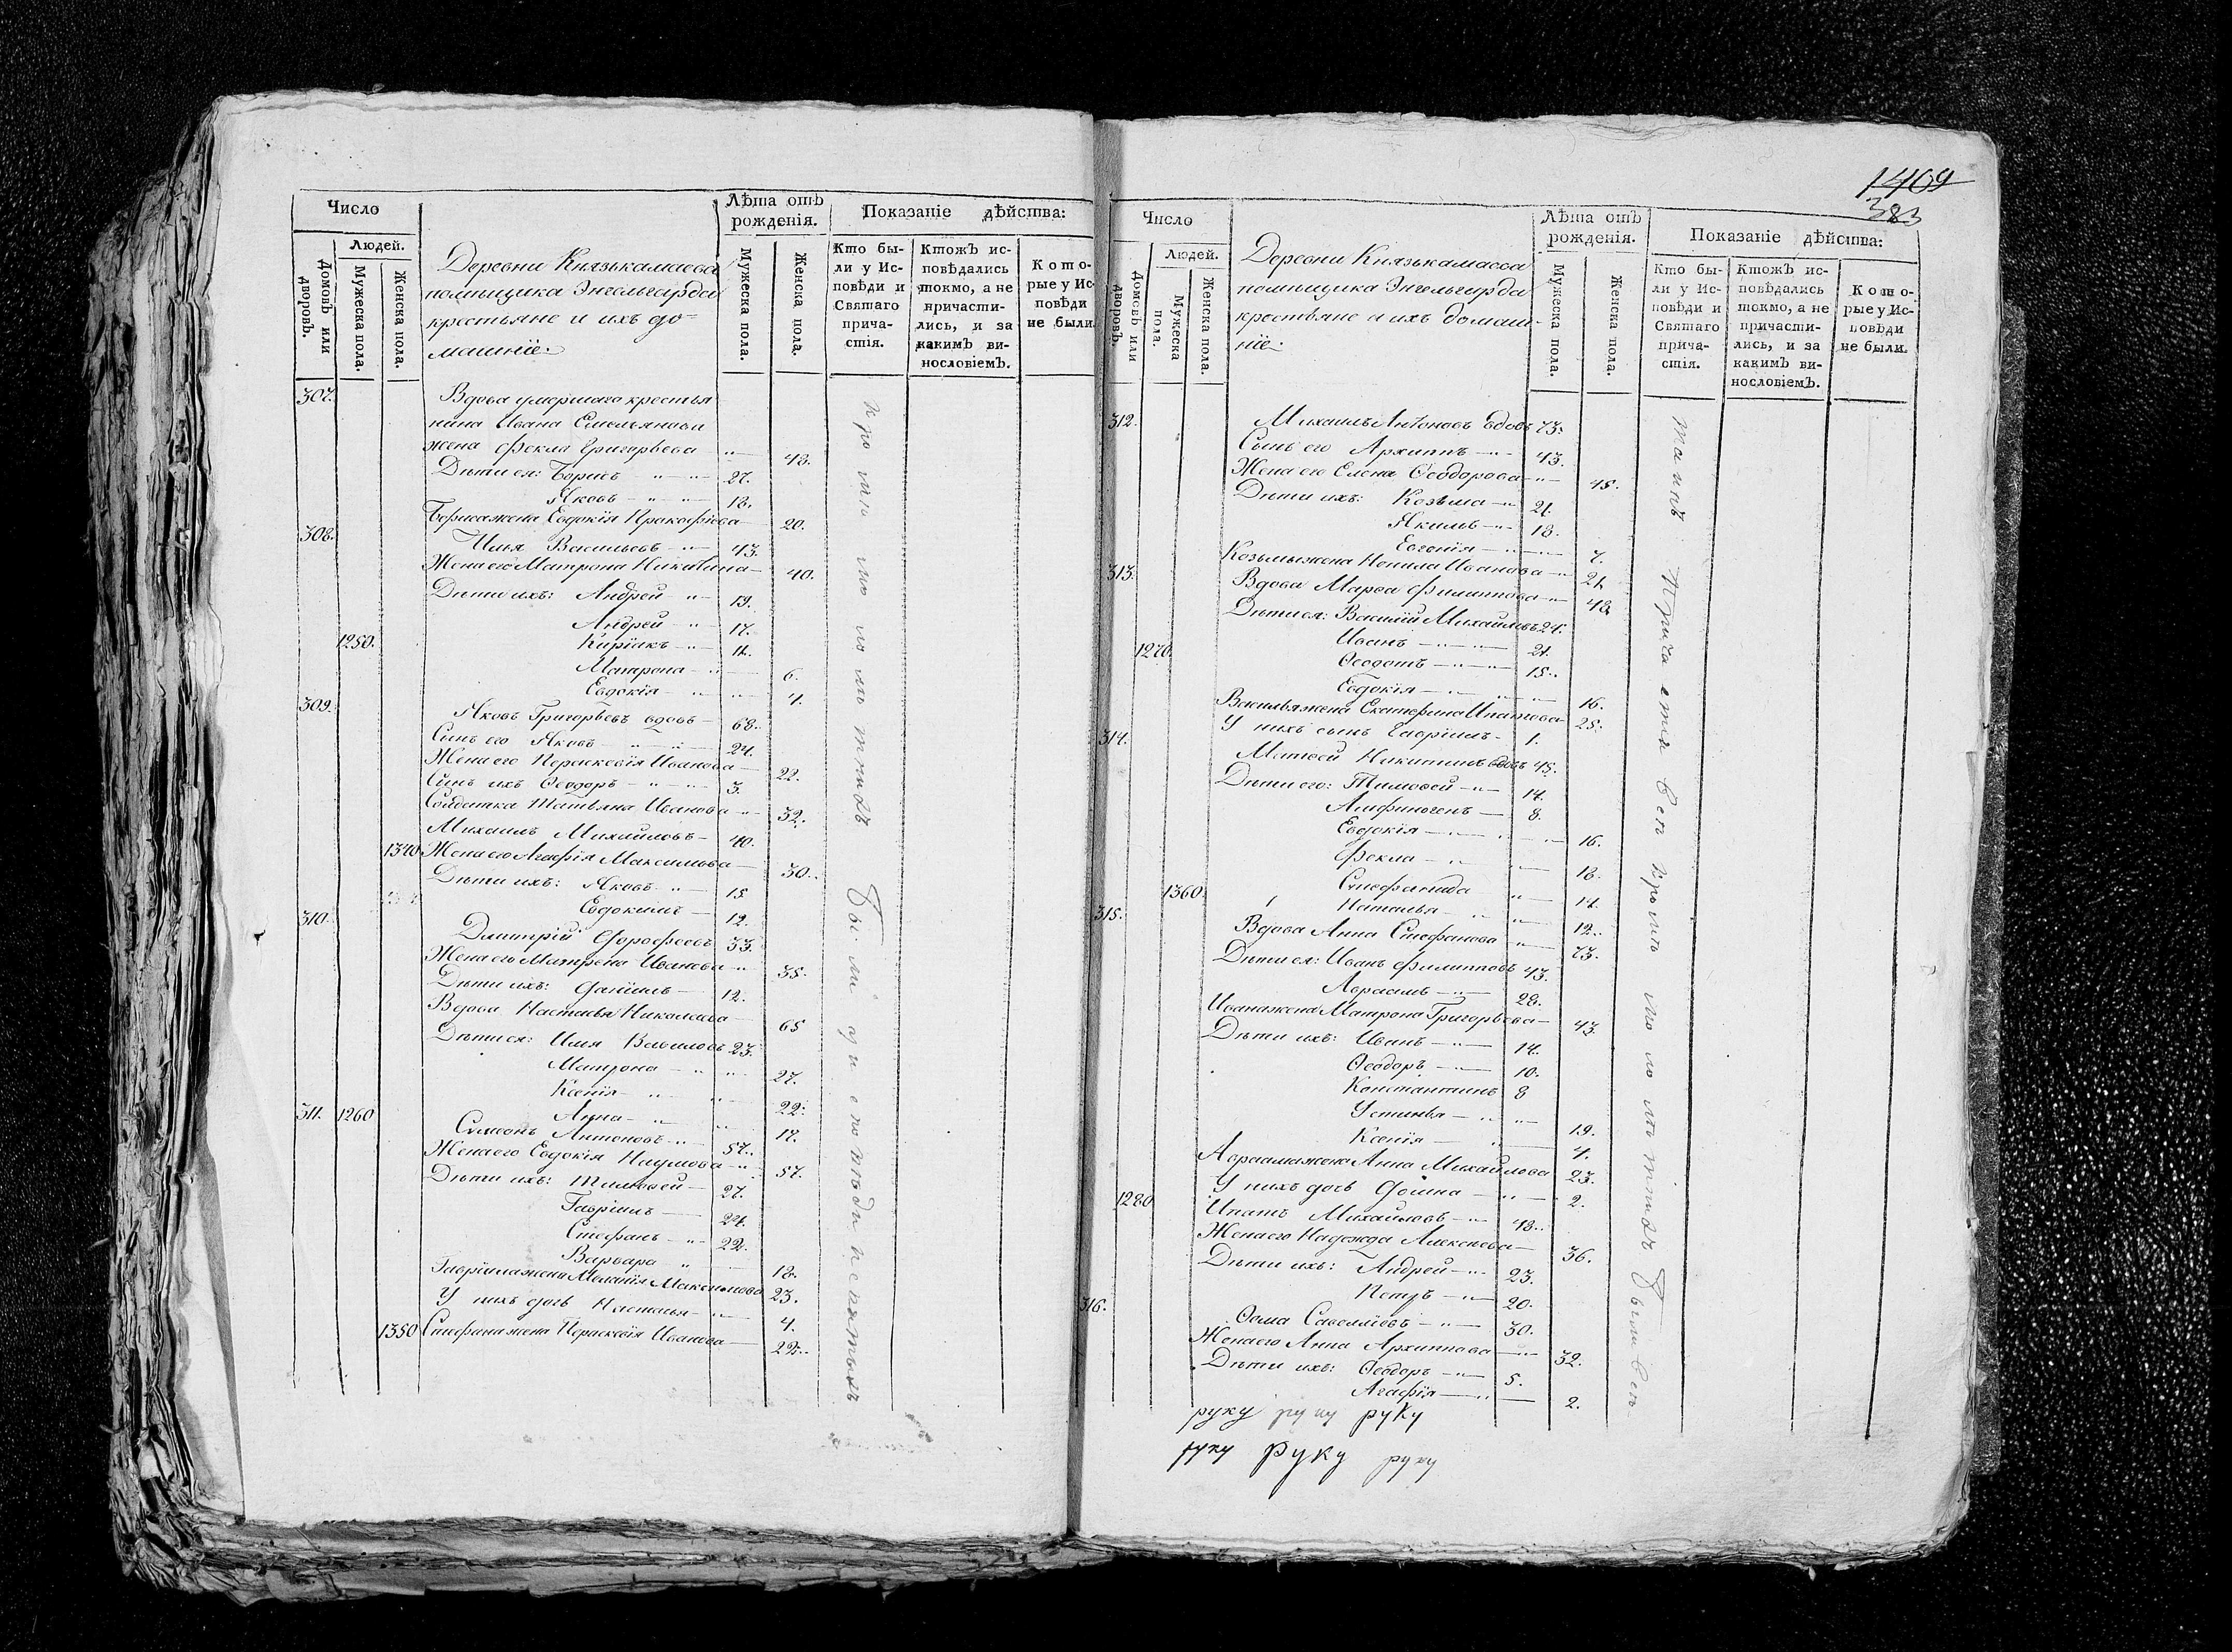 Число
Людей.
Домовъ или дворовъ.
Мужеска пола.
Женска пола.
Деревни Князькамаева
помѣщика Энгельгарда
крестьяне и ихъ до=
машніе:
Лѣта отъ рожденія.
Мужеска пола.
Женска пола.
Показаніе дѣйства:
Кто бы-
ли у Ис-
повѣди и
Святаго
прича-
стія.
Ктожъ ис-
повѣдались
токмо, а не
причасти-
лись, и за
какимъ ви-
нословіемъ.
Кото-
рые у Ис-
повѣди
не были.
307. Вдова умершаго крестья
нина Ивана Емельянова
жена Фекла Григорьева 48.
Дѣти ея: Борисъ 27.
Яковъ 18.
Бориса жена Евдокія Прокофіева 20.
308. Илья Васильевъ 43.
Жена его Матрона Никитина 40.
Дѣти ихъ: Андрей 19.
Андрей 17.
1250. Киріакъ 11.
Матрона 6.
Евдокія 4.
309. Яковъ Григорьевъ вдовъ 68.
Сынъ его Яковъ 24.
Жена его Параскевія Иванова 22.
Сынъ ихъ Ѳеодоръ 3.
Солдатка Татьяна Иванова 32.
Михаилъ Михайловъ 40.
1340 Жена его Агафія Максимова 30.
Дѣти ихъ: Яковъ 15
Евдокимъ 12.
310. Дмитрій Дорофеевъ 33.
Жена его Матрена Иванова 35.
Дѣти ихъ: Даніилъ 12.
Вдова Настасья Николаева 65
Дѣти ея: Илья Вавиловъ 23.
Матрона 27.
Ксенія 22.
Анна 17.
311. 1260 Симеонъ Антоновъ 57.
Жена его Евдокія Наумова 57.
Дѣти ихъ: Тимоѳей 27.
Гавріилъ 24.
Стефанъ 22.
Варвара 18.
Гавріила жена Меланія Максимова 23.
У нихъ дочь Настасья 4.
1350 Стефана жена Параскевія Иванова 22.
были
1409
383
Число
Людей.
Домовъ или дворовъ.
Мужеска пола.
Женска пола.
Деревни Князькамаева
помѣщика Энгельгарда
крестьяне и ихъ домаш-
ніе:
Лѣта отъ рожденія.
Мужеска пола.
Женска пола.
Показаніе дѣйства:
Кто бы-
ли у Ис-
повѣди и
Святаго
прича-
стія.
Ктожъ ис-
повѣдались
токмо, а не
причасти-
лись, и за
какимъ ви-
нословіемъ.
Кото-
рые у Ис-
повѣди
не были.
312. Михаилъ Антоновъ вдовъ 73.
Сынъ его Архиппъ 43.
Жена его Елена Ѳеодорова 45.
Дѣти ихъ: Козьма 21.
Якимъ 18.
Евгенія 7.
Козьмы жена Ненила Иванова 21.
313. Вдова Марѳа Филиппова 48
Дѣти ея: Василій Михайловъ 24.
Иванъ 21.
1270. Ѳеодотъ 15.
Евдокія 16.
Василья жена Екатерина Ипатова 25.
У нихъ сынъ Гавріилъ 1.
314. Матвей Никитинъ вдовъ 45.
Дѣти его: Тимоѳей 14.
Анфиногенъ 8.
Евдокія 16.
Фекла 18.
1360. Стефанида 14.
Наталья 12.
315. Вдова Анна Стефанова 73.
Дѣти ея: Иванъ Филипповъ 43.
Авраамъ 28.
Ивана жена Матрона Григорьева 43.
Дѣти ихъ: Иванъ 14.
Ѳеодоръ 10.
Константинъ 8
Устинья 19.
Ксенія 4.
Авраама жена Анна Михайлова 23.
У нихъ дочь Домна 2.
1280 Ипатъ Михайловъ 43.
Жена его Надежда Алексѣева 36.
Дѣти ихъ: Андрей 23.
Петръ 20.
316. Ѳома Савеліевъ 30.
Жена его Анна Архиппова 32.
Дѣти ихъ: Ѳеодоръ 5.
Агафія 2.
руку руку руку
руку руку руку